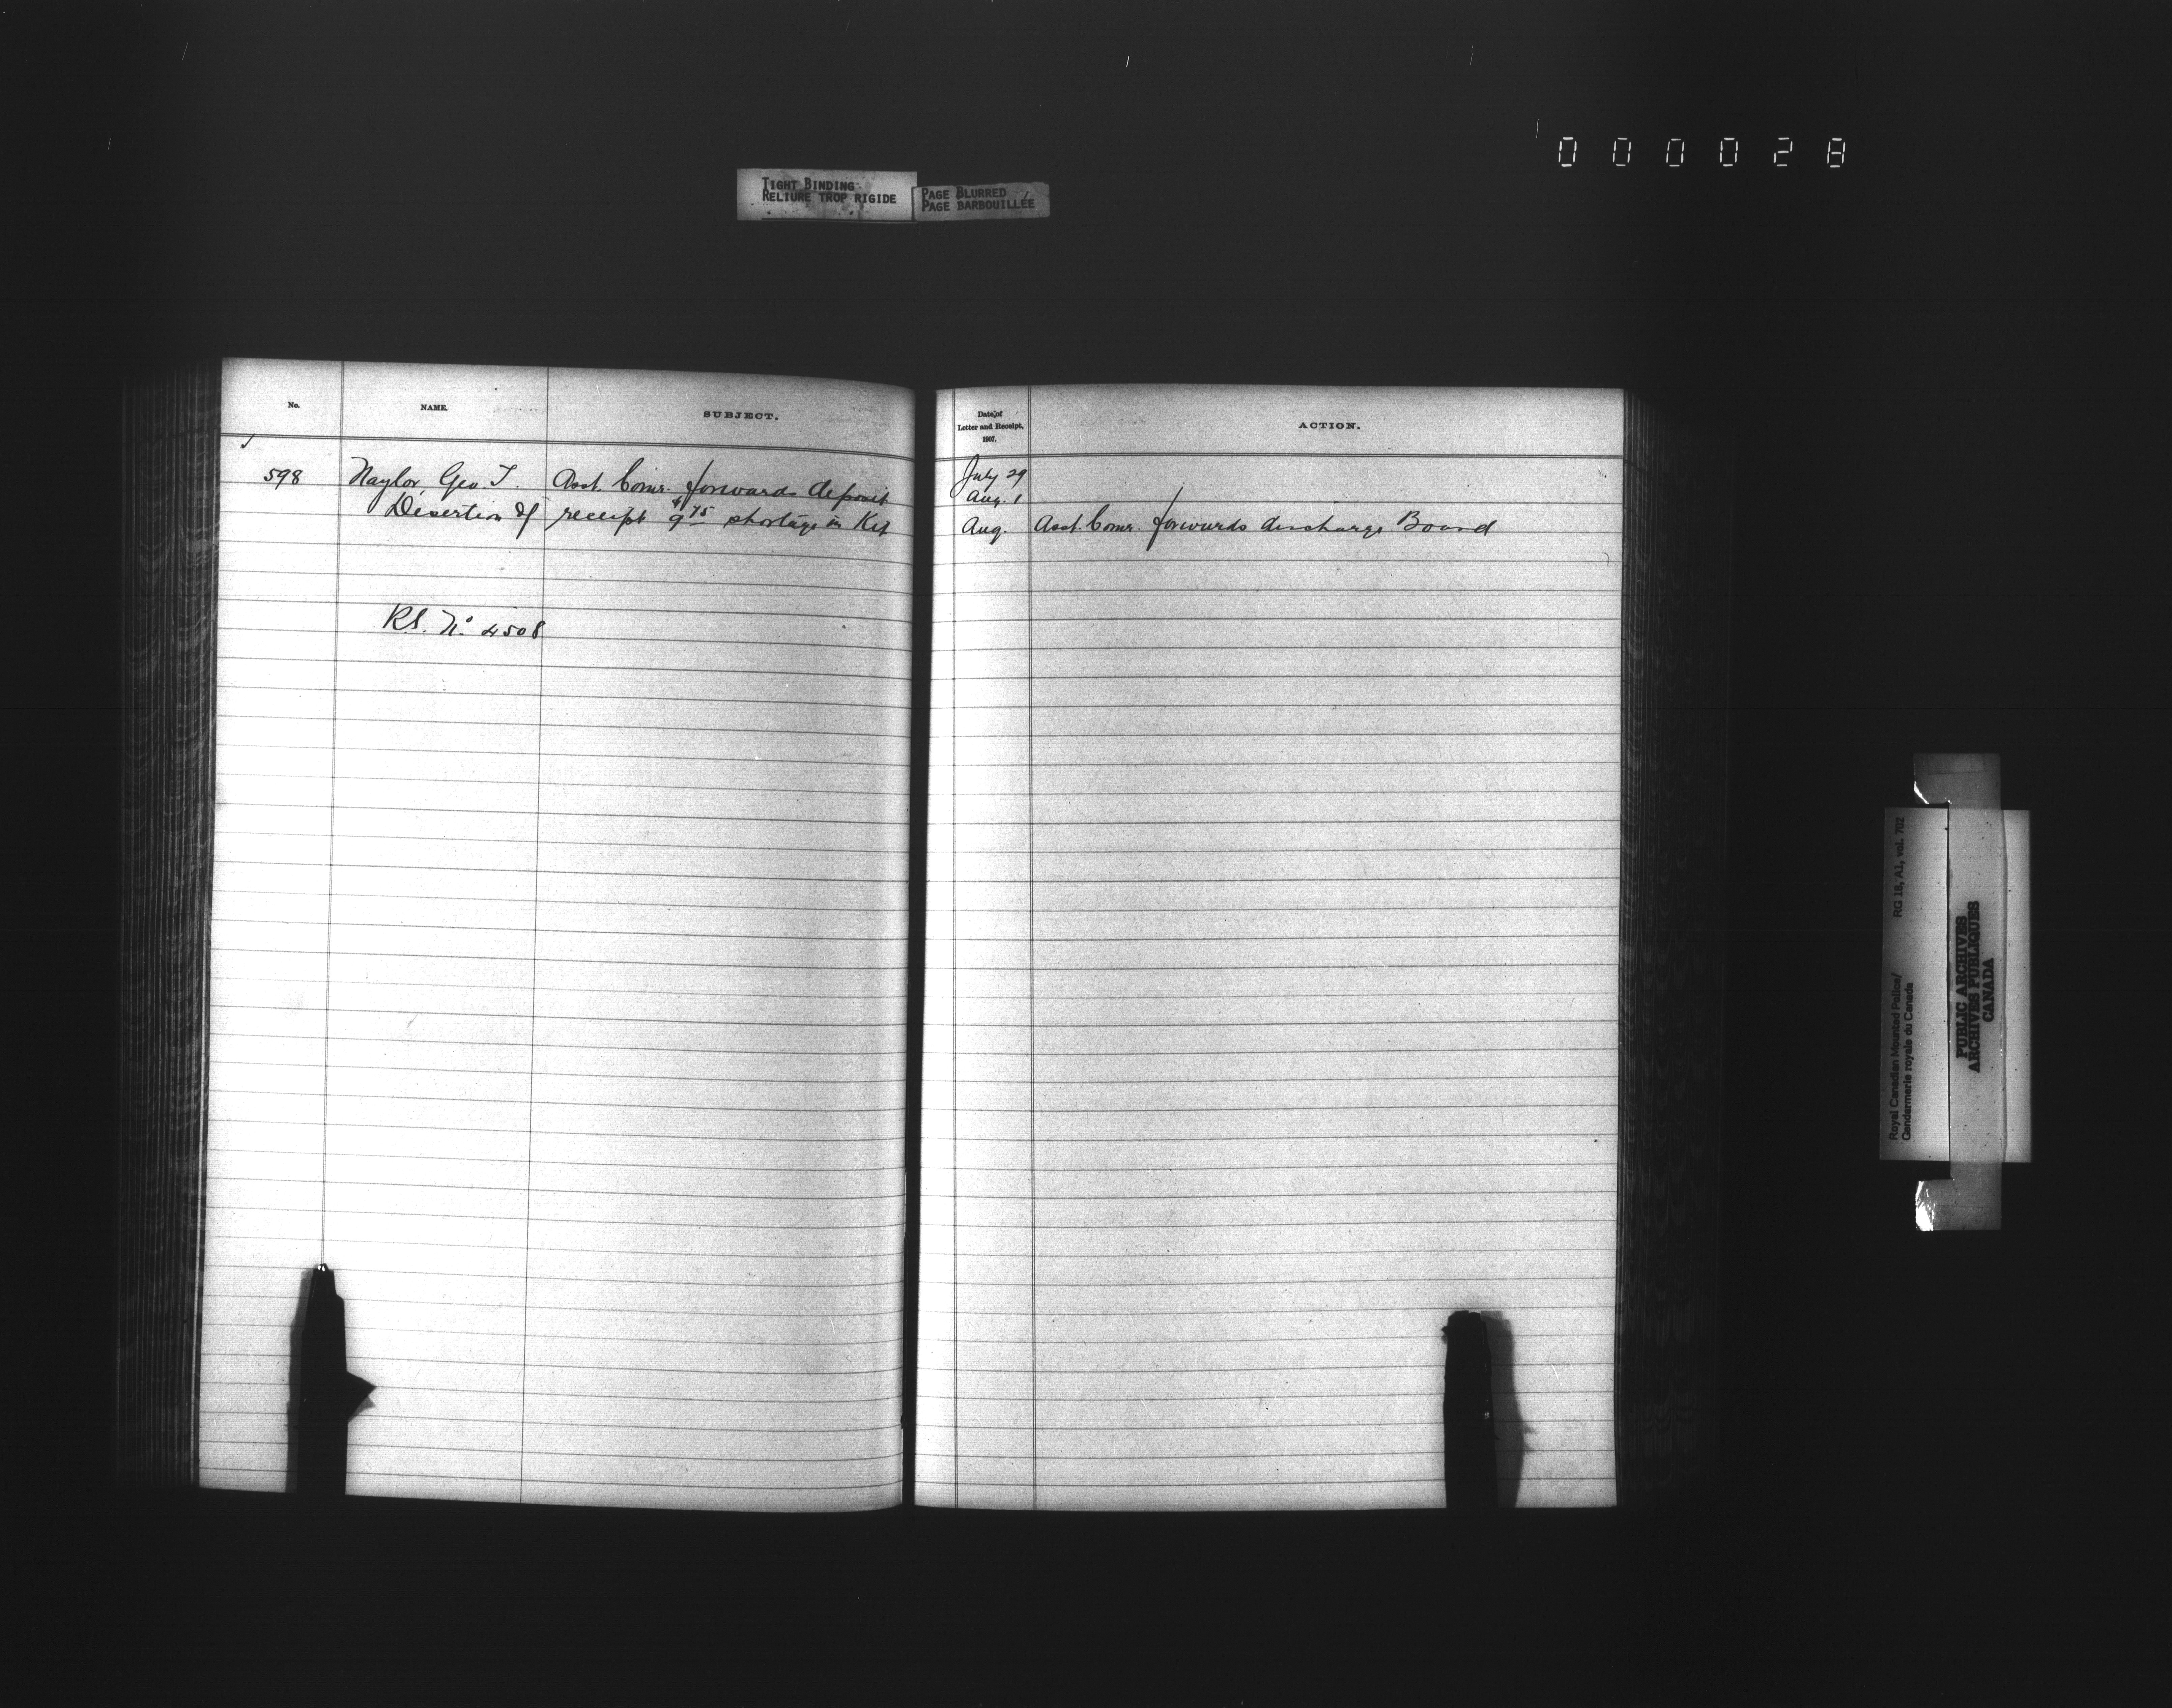 000028
TIGHT BINDING
RELIURE TROP RIGIDE
PAGE BLURRED
PAGE BARBOUILLÉE
No.
NAME.
SUBJECT.
598
Naylor Geo. T.
Desertion of
Asst. Comr. forwards deposit
receipt $9 75 shortage in Kit
R.S. No. 4508
Date of
Letter and Receipt,
1907.
ACTION.
July 29
Aug. 1
Aug. Asst. Comr. forwards discharge Board
Royal Canadian Mounted Police/
Gendarmerie royale du Canada
RG 18, A1, vol. 702
PUBLIC ARCHIVES
ARCHIVES PUBLIQUES
CANADA